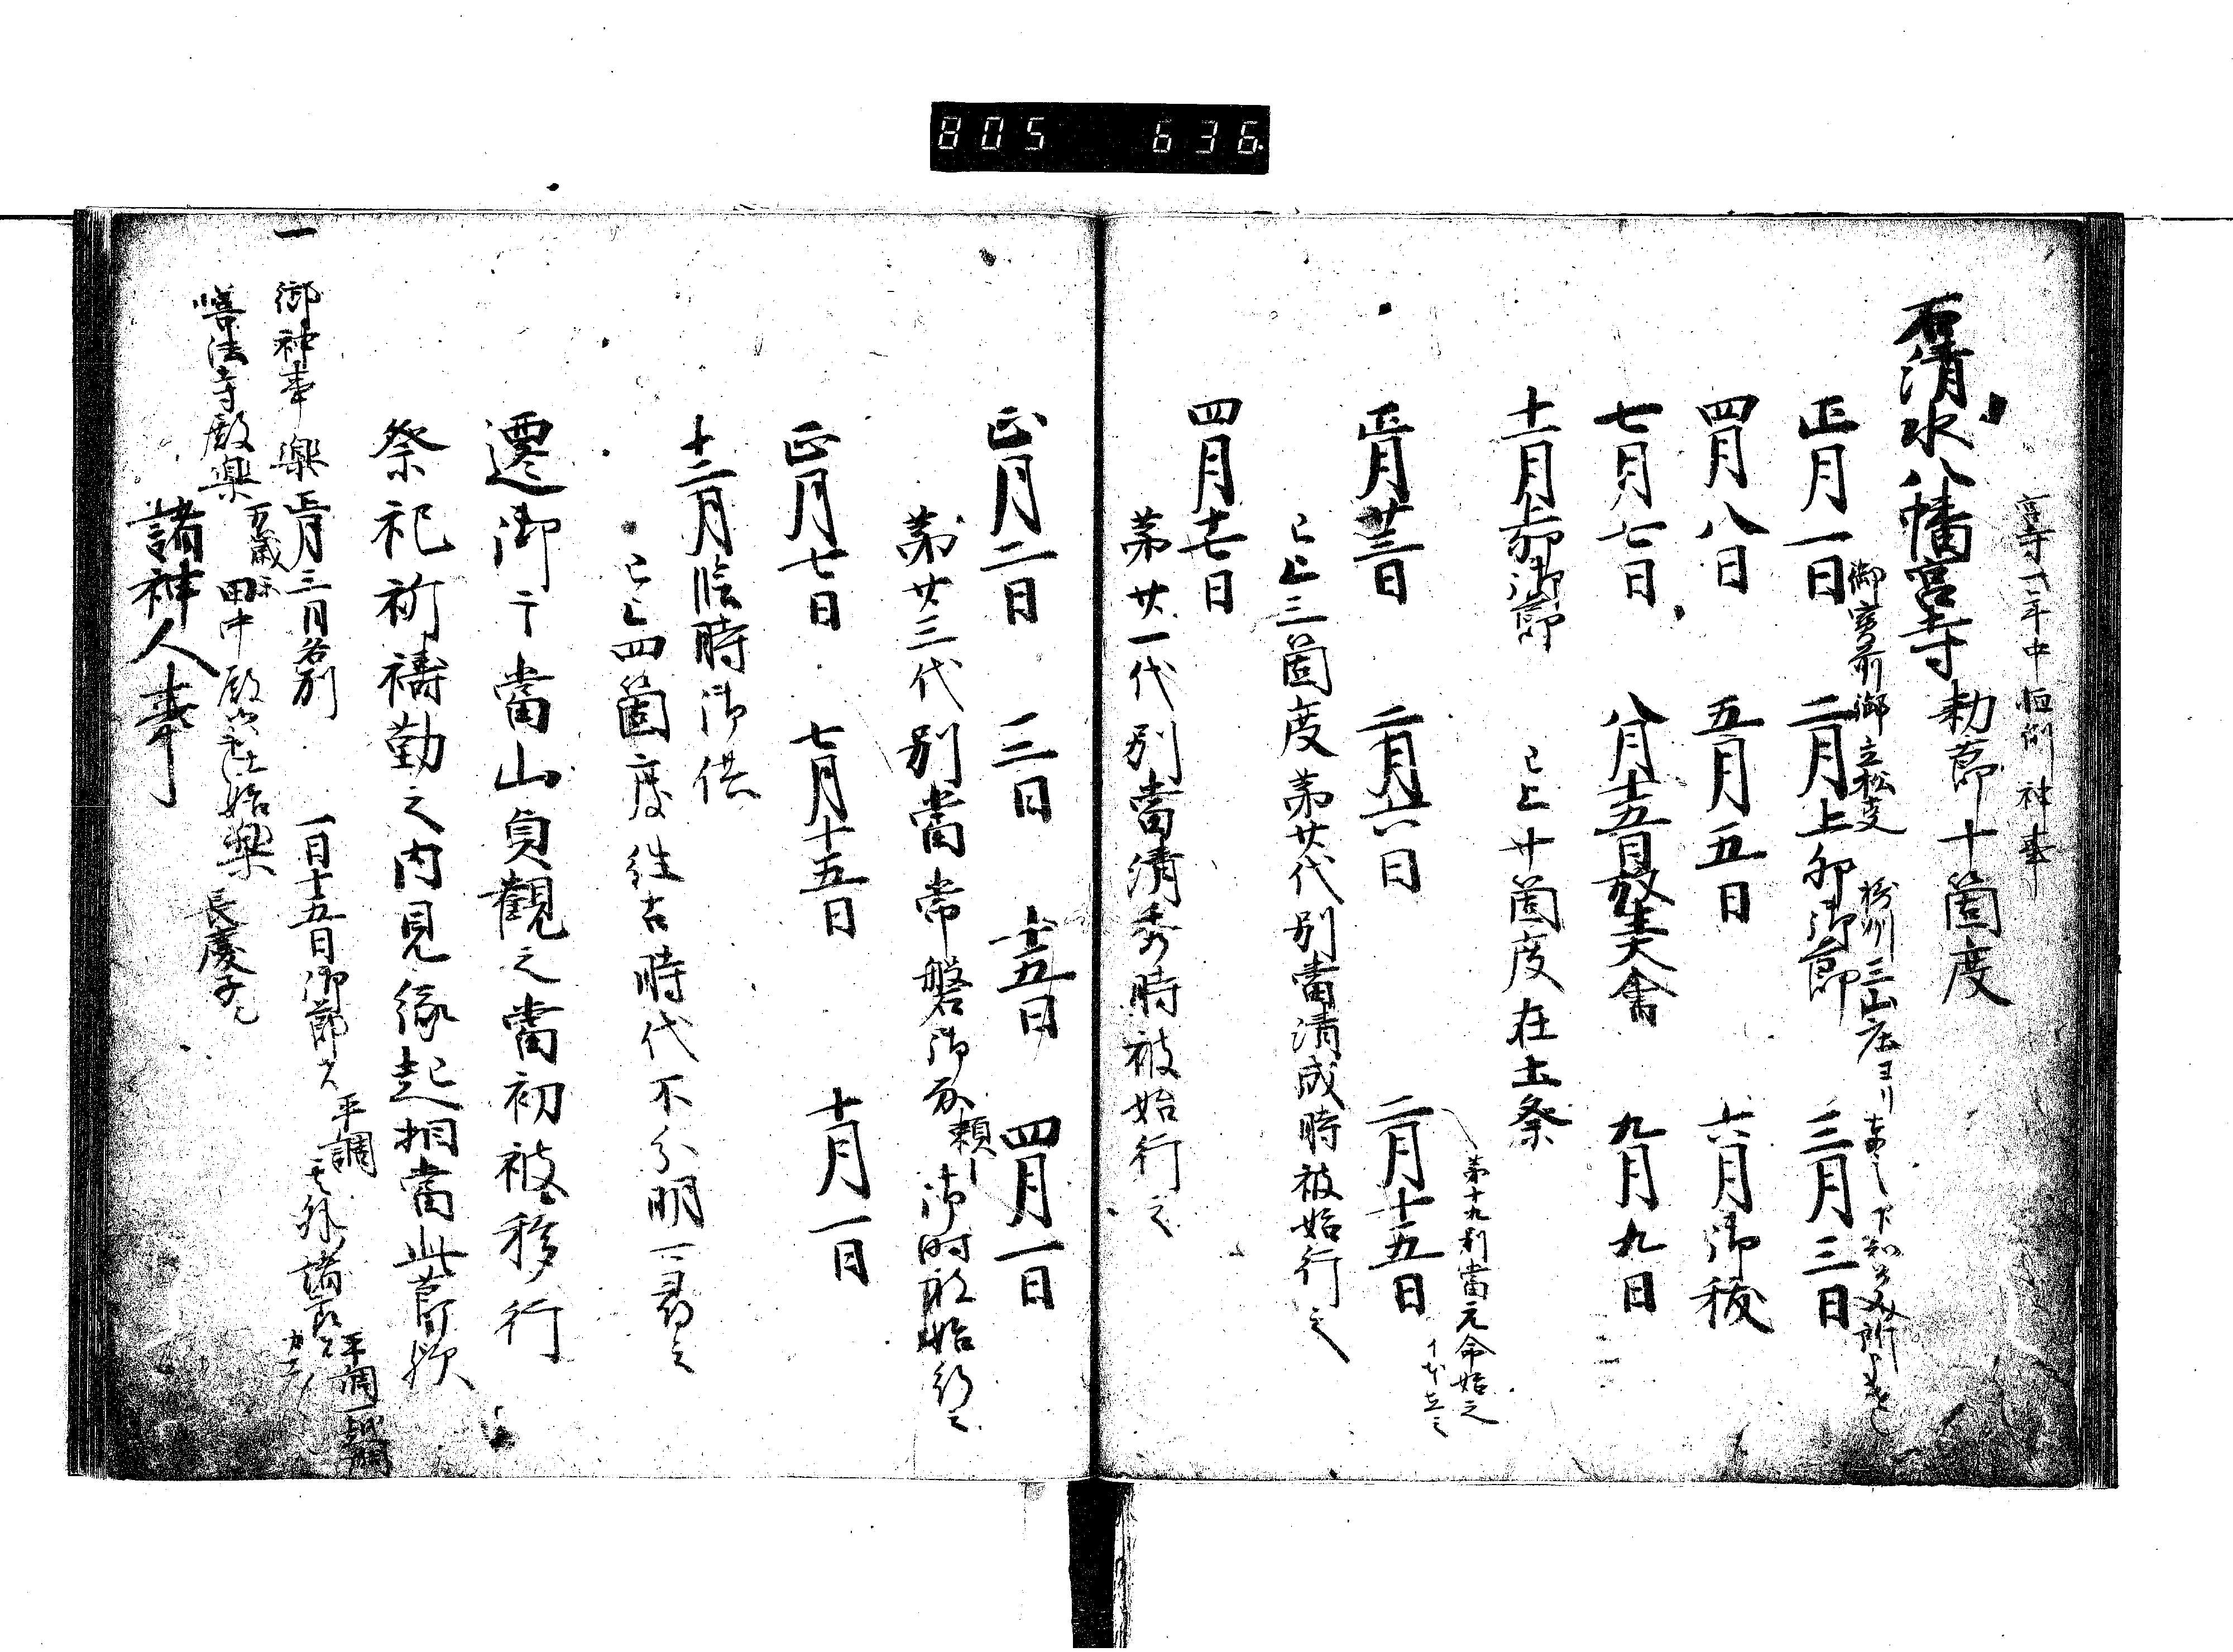 805 636
年中恒例神事
石清水八幡宮寺 勅節十箇度
御宝前御立松支 三山庄ヨリ 下知
正月一日 二月上卯御節 三月三日
四月八日 五月五日 六月御秡
七月七日 八月十五日放生大會 九月九日
十一月上卯御節 已上十箇度在土祭
第十九別當元命始之
正月廿三日 二月六日 二月十五日
已上三箇度第廿代別當清成時被始行之
四月十七日
第廿一代別當清秀時被始行之
正月二日 三日 十五日 四月一日
第廿三代別當常磐御 頼 御時被始行之
正月七日 七月十五日 十月一日
十二月臨時御供
已上四箇度往古時代不分明可尋之
遷御于當山貞觀之當初被移行
祭祀祈禱勤之内見縁起相當此節歟
一 御神事樂 正月三日各別 一日十五日御節 平調 平調
善法寺殿楽 万歳 田中殿 始樂 長慶子
諸神人事